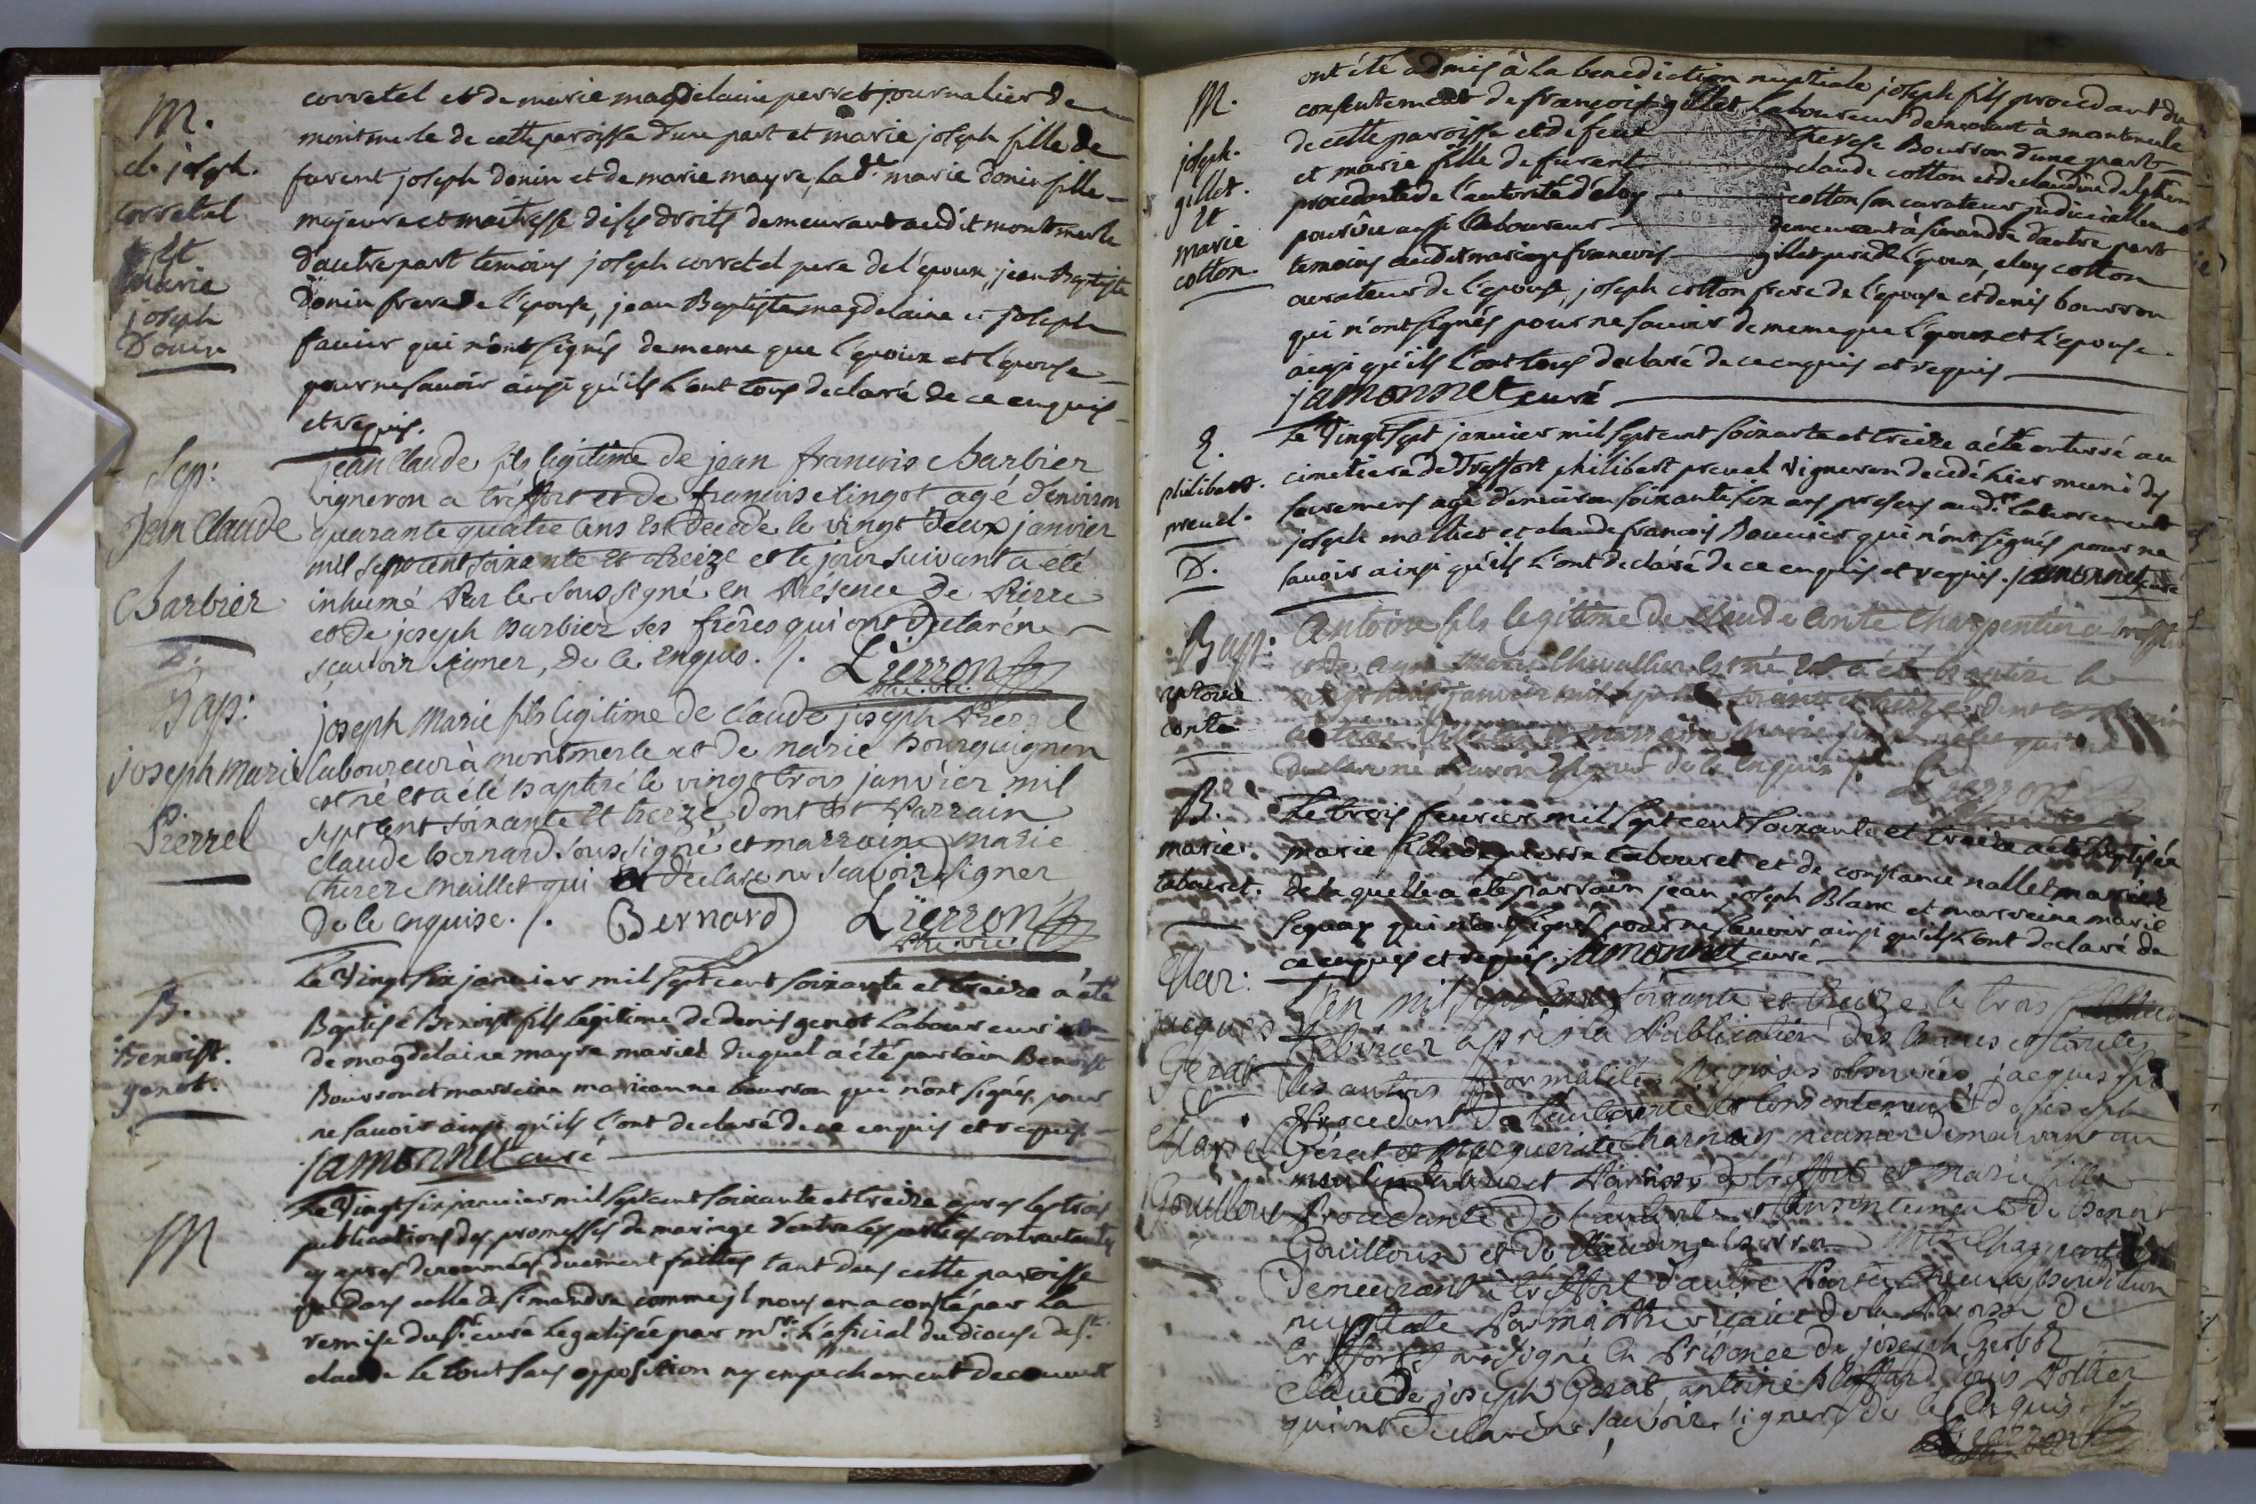 M.
cl. joseph.
corretel
Et
marie
joseph
Donin
corretel et de marie magdelaine perret journalier de
montmerle de cette paroisse d'une part et marie joseph fille de
furent joseph donin et de marie mayre, lad.e marie donin fille
majeure et maitresse de ses droits demeurant audit montmerle
d'autre part temoins joseph corretel pere de l'epoux, jean Baptiste
Donin frere de l'epouse, jean Baptiste magdelaine et joseph
favier qui n'ont signés de meme que l'epoux et l'epouse
pour ne savoir ainsi qu'ils l'ont tous declaré de ce enquis
et requis.
Sep:
Jean Claude
Barbier
jean Claude fils legitime de jean francois Barbier
vigneron a tréffort et de francoise lingot agé d'environ
quarante quatre ans est decedé le vingt deux janvier
mil sept cent soixante et treize et le jour suivant a eté
inhumé Par le soussigné en Présence De Pierre
et de joseph Barbier ses frères qui ont declaré ne
scavoir signer, De ce enquis. /. Lierron
Pre. vic.
Bap:
joseph Marie
Pierrel
joseph Marie fils legitime de Claude joseph Pierrel
laboureur à montmerle et de marie Bourguignon
est né et a eté baptizé le vingt trois janvier mil
sept cent soixante et treize dont est Parrain
Claude Bernard soussigné et marraine Marie
therese maillet qui a déclaré ne scavoir signer
De ce enquise. /. Bernard Lierron
Pre. vic.
B.
Benoist.
genot.
Le Vingt six janvier mil sept cent soixante et treize a été
Baptisé Benoist fils legitime de denis genot laboureur et
de magdelaine mayre mariés duquel a été parrain Benoist
Bourson et marreine marianne bourson qui n'ont signés pour
ne savoir ainsi qu'ils l'ont declaré de ce enquis et requis.
jamonnet curé
M
Le Vingt six janvier mil sept cent soixante et treize apres les trois
publications des promesses de mariage d'entre les parties contractantes
cy apres denommées duement faittes tant dans cette paroisse
que dans celle de st. mandre comme jl nous en a consté par la
remise du sr. curé legalisée par mr. l'official du diocese de st.
claude le tout sans opposition ny empechement decouvert
M.
joseph.
gillet.
Et
marie
cotton.
ont été admis à la benediction nuptiale joseph fils procedant du
consentement de françois gillet laboureur demeurant à montmerle
de cette paroisse et de feue therese Bourson d'une part
et marie fille de furent claude cotton et de claudine
procedante de l'autorité d'eloy cotton son curateur judiciellement
pourvüe aussi laboureur demeurant à simandre d'autre part
temoins audit mariage francois gillet pere de l'epoux, eloy cotton
curateur de l'epouse, joseph cotton frere de l'epouse et denis bourson
qui n'ont signés pour ne savoir de meme que l'epoux et l'epouse
ainsi qu'ils l'ont tous declaré de ce enquis et requis
jamonnet curé
philibert.
preuel.
D.
Le Vingt sept janvier mil sept cent soixante et treize a été enterré au
cimetiere de Treffort philibert preuel vigneron decedé hier muni des
sacremens agé d'environ soixante six ans presens aud. enterrement
joseph maltier et claude francois Bouvier qui n'ont signés pour ne
savoir ainsi qu'ils l'ont declaré de ce enquis et requis. jamonnet curé
Bap:
antoine
conte
Antoine fils legitime de Claude Conte Charpentier a treffort
et de Marie Chevallier est né et a été baptizé le
janvier mil sept cent soixante et treize dont est Parrain
antoine marraine Marie
declaré ne scavoir signer de ce enquis /. Lierron
B.
marie.
tabouret.
Le trois fevrier mil sept cent soixante et treize a été baptisée
marie fille de pierre tabouret et de constance nallet mariés
de laquelle a été parrain jean joseph Blanc et marreine marie
sequax qui n'ont signés pour ne savoir ainsi qu'ils l'ont declaré de
ce enquis et requis. jamonnet curé
Mar:
jacques
Gerat
Marie
Gouilloux
L'an mil sept cent soixante et treize le trois
février après la Publication des bannes et toutes
les autres formalités requises observées jacques fils
Procedant De l'authorité et consentement de joseph
Gérat et Marguerite Charnay meunier demeurant au
moulin tabouret Paroisse de treffort et Marie fille
Procedante De l'authorité et consentement De Benoit
Gouilloux et de Claudine Charpentier
Demeurant a tréffort d'autre Part
nuptiale Par moi Pre vicaire de la Paroisse de
treffort soussigné En Présence de joseph Gerat
Claude joseph Gerat, antoine louis Poltier
qui ont déclaré ne scavoir signer de ce Enquis /.
Lierron